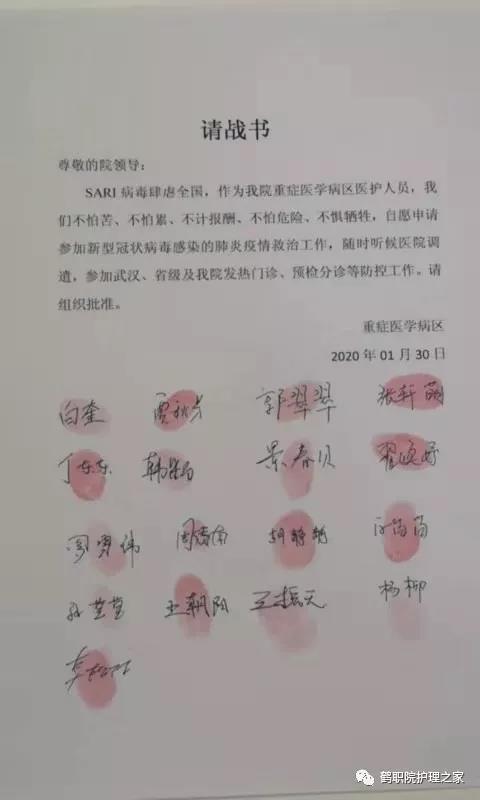 请战书
尊敬的院领导：
SARI 病毒肆虐全国，作为我院重症医学病区医护人员，我
们不怕苦、不怕累、不计报酬、不怕危险、不惧牺牲，自愿申请
参加新型冠状病毒感染的肺炎疫情救治工作，随时听候医院调
遣，参加武汉、省级及我院发热门诊、预检分诊等防控工作。请
组织批准。
重症医学病区
2020 年 01 月 30 日
白奎 贾秋芳 郭翠翠 张轩
丁东东 景春贝
周 胡静艳
孙莹莹 王朝阳 王振元 杨柳
鹤职院护理之家